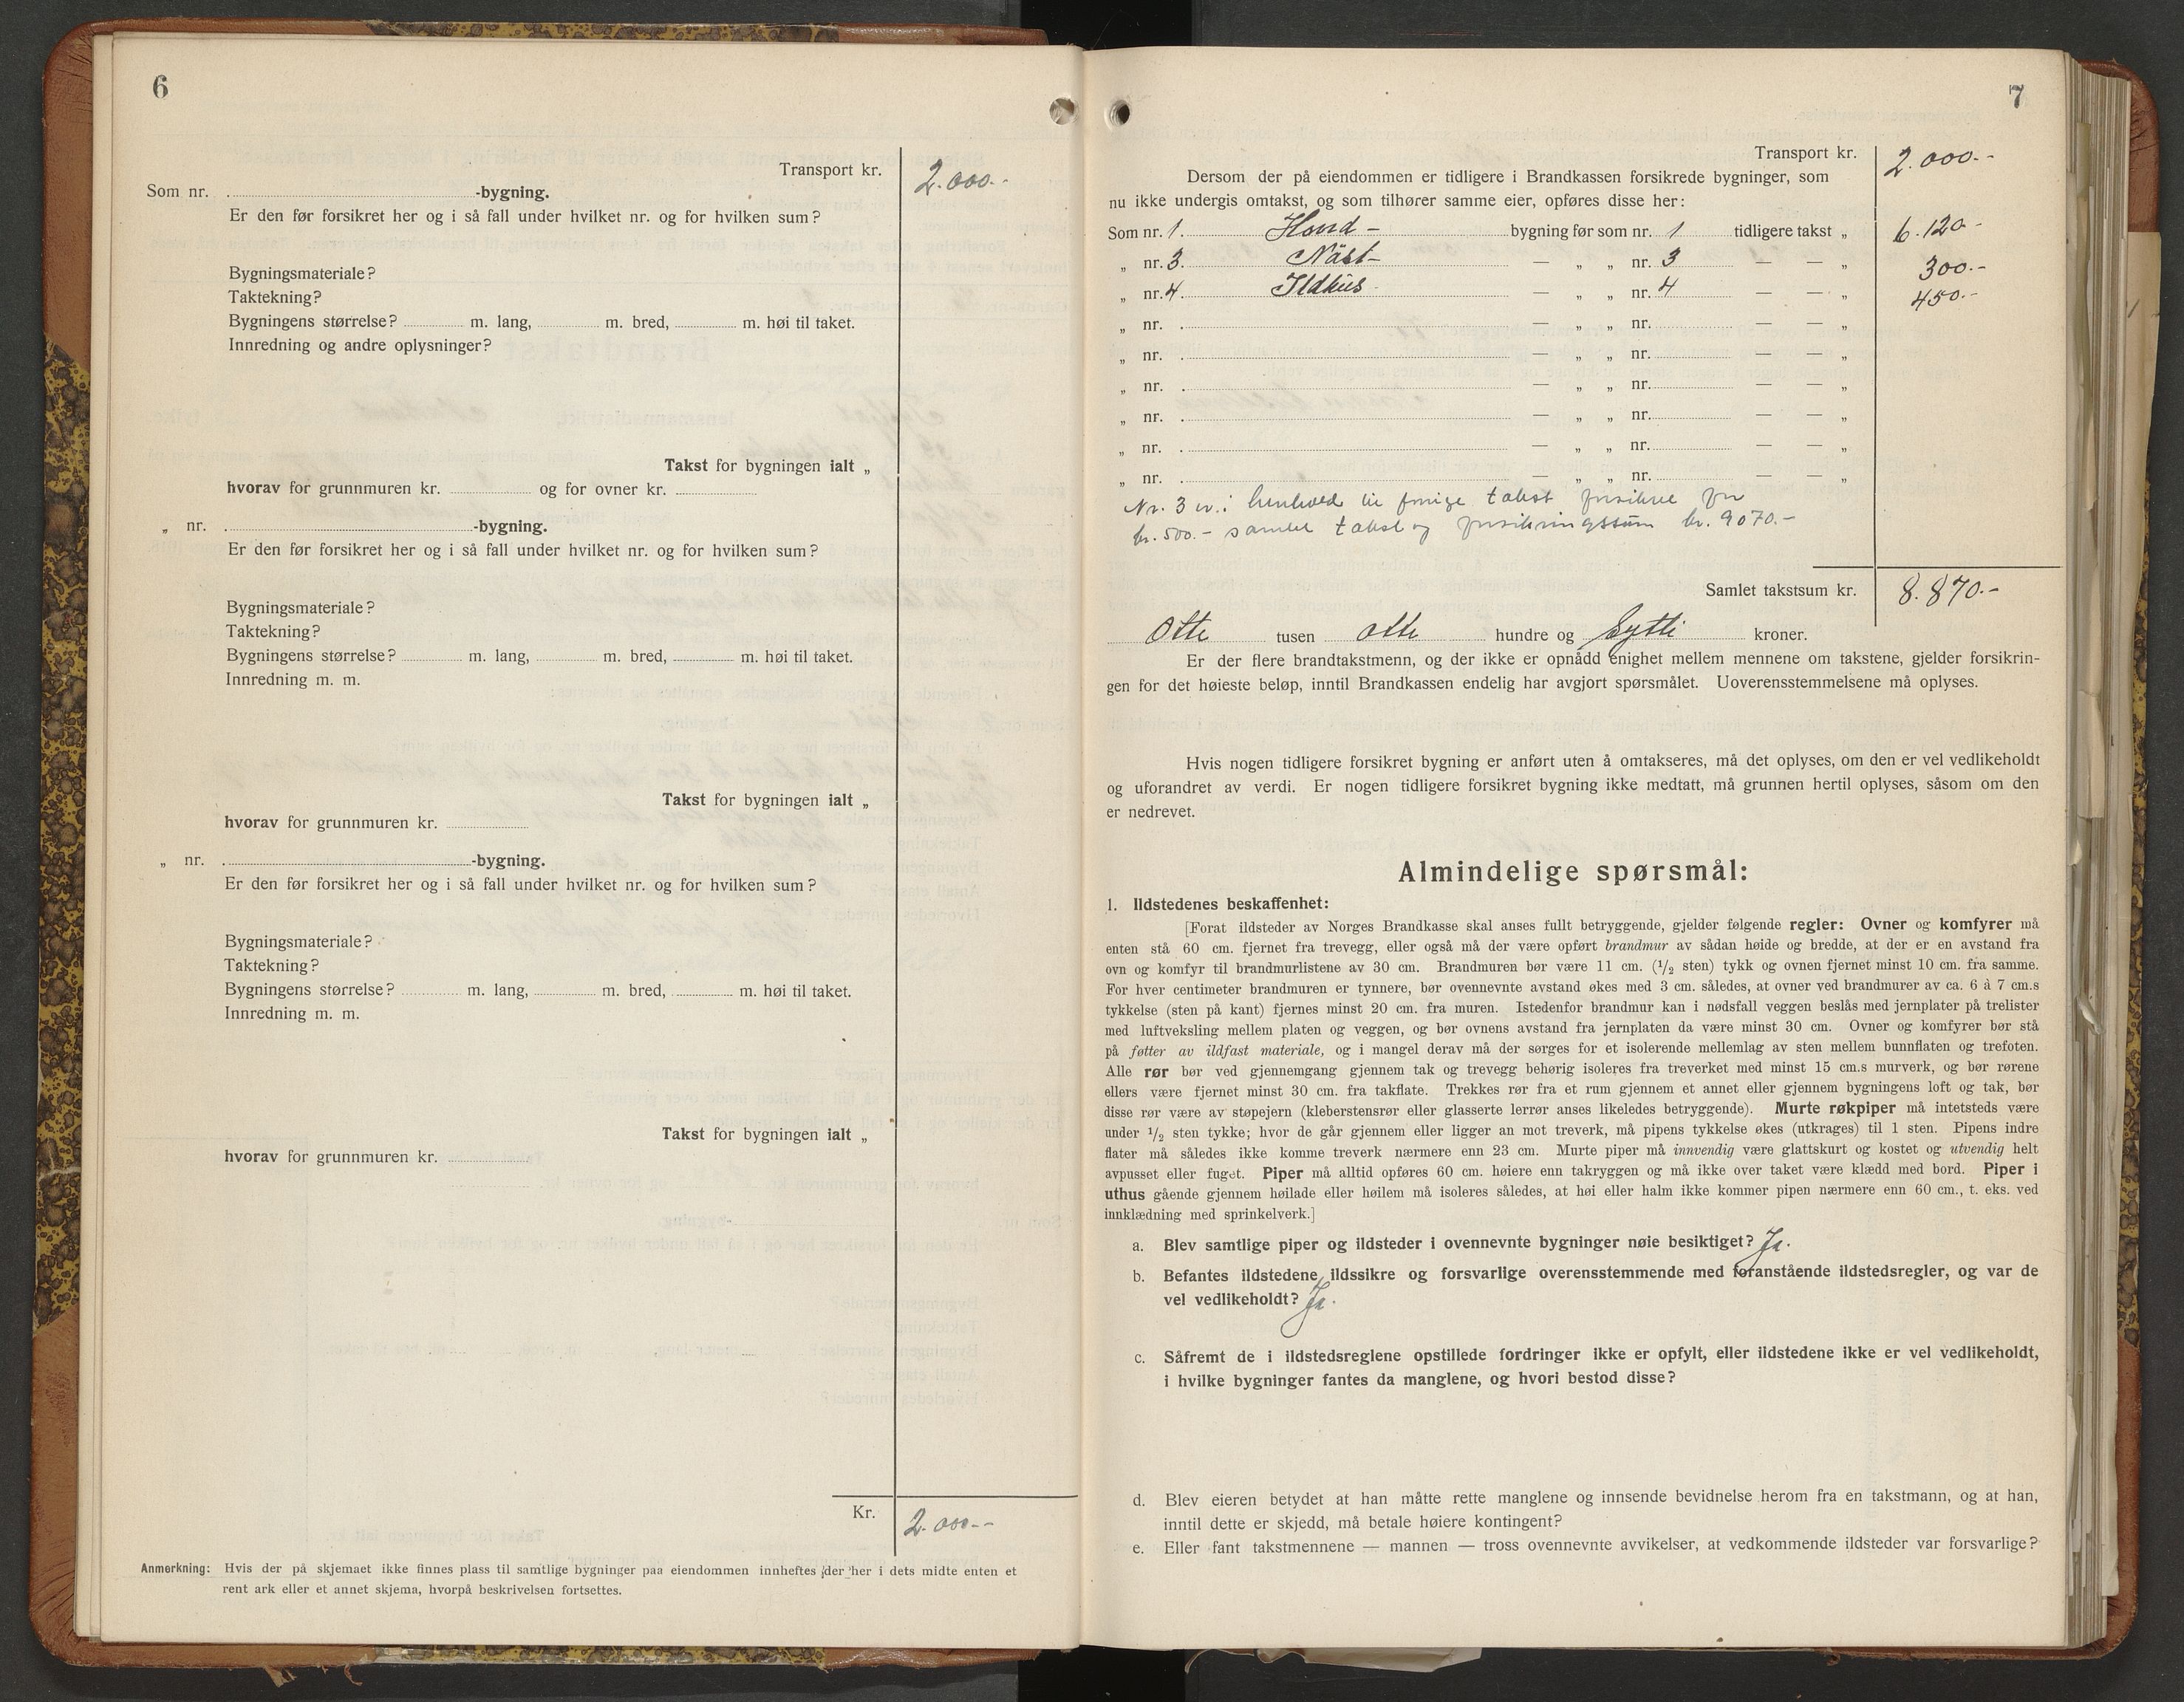 6
Transport kr. 2.000.-
Som nr. -bygning.
Er den før forsikret her og i så fall under hvilket nr. og for hvilken sum?
Bygningsmateriale?
Taktekning?
Bygningens størrelse? m. lang, m. bred, m. høi til taket.
Innredning og andre oplysninger?
Takst for bygningen ialt „
hvorav for grunnmuren kr. og for ovner kr.
„ nr. -bygning.
Er den før forsikret her og i så fall under hvilket nr. og for hvilken sum?
Bygningsmateriale?
Taktekning?
Bygningens størrelse? m. lang, m. bred, m. høi til taket.
Innredning m. m.
Takst for bygningen ialt „
hvorav for grunnmuren kr.
„ nr. -bygning.
Er den før forsikret her og i så fall under hvilket nr. og for hvilken sum?
Bygningsmateriale?
Taktekning?
Bygningens størrelse? m. lang, m. bred, m. høi til taket.
Innredning m. m.
Takst for bygningen ialt „
hvorav for grunnmuren kr.
Kr. 2.000.-
Anmerkning: Hvis der på skjemaet ikke finnes plass til samtlige bygninger paa eiendommen innheftes der her i dets midte enten et
rent ark eller et annet skjema, hvorpå beskrivelsen fortsettes.
7
Transport kr. 2.000.-
Dersom der på eiendommen er tidligere i Brandkassen forsikrede bygninger, som
nu ikke undergis omtakst, og som tilhører samme eier, opføres disse her:
Som nr. 1. - bygning før som nr. 1 tidligere takst „ 6.120.-
„ nr. 3. Näst- — „ „ nr. 3 — — „ 300.-
„ nr. 4. Ildhus — „ „ nr. 4 — — „ 450.-
„ nr. — „ „ nr. — — „
„ nr. — „ „ nr. — — „
„ nr. — „ „ nr. — — „
„ nr. — „ „ nr. — — „
„ nr. — „ „ nr. — — „
„ nr. — „ „ nr. — — „
Nr. 3 er i henhold til forrige takst forsikret for
kr. 500.- samlet takst og forsikringssum kr. 9070.-
Samlet takstsum kr. 8.870.-
Otte tusen otte hundre og sytti kroner.
Er der flere brandtakstmenn, og der ikke er opnådd enighet mellem mennene om takstene, gjelder forsikrin-
gen for det høieste beløp, inntil Brandkassen endelig har avgjort spørsmålet. Uoverensstemmelsene må oplyses.
Hvis nogen tidligere forsikret bygning er anført uten å omtakseres, må det oplyses, om den er vel vedlikeholdt
og uforandret av verdi. Er nogen tidligere forsikret bygning ikke medtatt, må grunnen hertil oplyses, såsom om den
er nedrevet.
Almindelige spørsmål:
1. Ildstedenes beskaffenhet:
[Forat ildsteder av Norges Brandkasse skal anses fullt betryggende, gjelder følgende regler: Ovner og komfyrer må
enten stå 60 cm. fjernet fra trevegg, eller også må der være opført brandmur av sådan høide og bredde, at der er en avstand fra
ovn og komfyr til brandmurlistene av 30 cm. Brandmuren bør være 11 cm. (1/2 sten) tykk og ovnen fjernet minst 10 cm. fra samme.
For hver centimeter brandmuren er tynnere, bør ovennevnte avstand økes med 3 cm. således, at ovner ved brandmurer av ca. 6 à 7 cm.s
tykkelse (sten på kant) fjernes minst 20 cm. fra muren. Istedenfor brandmur kan i nødsfall veggen beslås med jernplater på trelister
med luftveksling mellem platen og veggen, og bør ovnens avstand fra jernplaten da være minst 30 cm. Ovner og komfyrer bør stå
på føtter av ildfast materiale, og i mangel derav må der sørges for et isolerende mellemlag av sten mellem bunnflaten og trefoten.
Alle rør bør ved gjennemgang gjennem tak og trevegg behørig isoleres fra treverket med minst 15 cm.s murverk, og bør rørene
ellers være fjernet minst 30 cm. fra takflate. Trekkes rør fra et rum gjennem et annet eller gjennem bygningens loft og tak, bør
disse rør være av støpejern (kleberstensrør eller glasserte lerrør anses likeledes betryggende). Murte røkpiper må intetsteds være
under 1/2 sten tykke; hvor de går gjennem eller ligger an mot treverk, må pipens tykkelse økes (utkrages) til 1 sten. Pipens indre
flater må således ikke komme treverk nærmere enn 23 cm. Murte piper må innvendig være glattskurt og kostet og utvendig helt
avpusset eller fuget. Piper må alltid opføres 60 cm. høiere enn takryggen og må ikke over taket være klædd med bord. Piper i
uthus gående gjennem høilade eller høilem må isoleres således, at høi eller halm ikke kommer pipen nærmere enn 60 cm., t. eks. ved
innklædning med sprinkelverk.]
a. Blev samtlige piper og ildsteder i ovennevnte bygninger nøie besiktiget? Ja.
b. Befantes ildstedene ildssikre og forsvarlige overensstemmende med foranstående ildstedsregler, og var de
vel vedlikeholdt? Ja.
c. Såfremt de i ildstedsreglene opstillede fordringer ikke er opfylt, eller ildstedene ikke er vel vedlikeholdt,
i hvilke bygninger fantes da manglene, og hvori bestod disse?
d. Blev eieren betydet at han måtte rette manglene og innsende bevidnelse herom fra en takstmann, og at han,
inntil dette er skjedd, må betale høiere kontingent?
e. Eller fant takstmennene — mannen — tross ovennevnte avvikelser, at vedkommende ildsteder var forsvarlige?